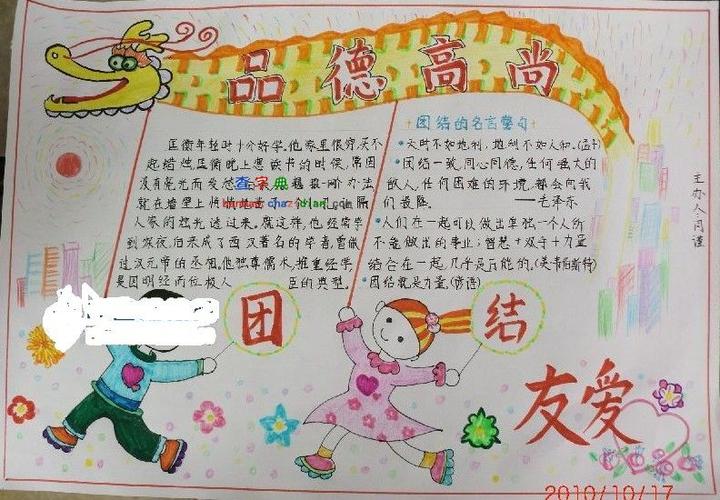 品德高尚
匡衡年轻时十分好学,他家里很穷,买不
起蜡烛,匡衡晚上想读书的时候,常因
没有亮光而发愁
办法
就在墙壁上
人家的烛光透过来,就这样,他经常学
到深夜,后来成了西汉著名的学者,曾做
过汉元帝的丞相。他独尊儒术,推重经学,
是因明经而位极人臣的典型。
团结的名言警句
•天时不如地利,地利不如人和。(孟子)
•团结一致,同心同德,任何强大的
敌人,任何困难的环境,都会向我
们投降。——毛泽东
•人们在一起可以做出单独一个人所
不能做出的事业;智慧+双手+力量
结合在一起,几乎是万能的。(美·韦伯斯特)
•团结就是力量。(谚语)
查字典
主办人:闫谨
团
结
友爱
2010/10/17